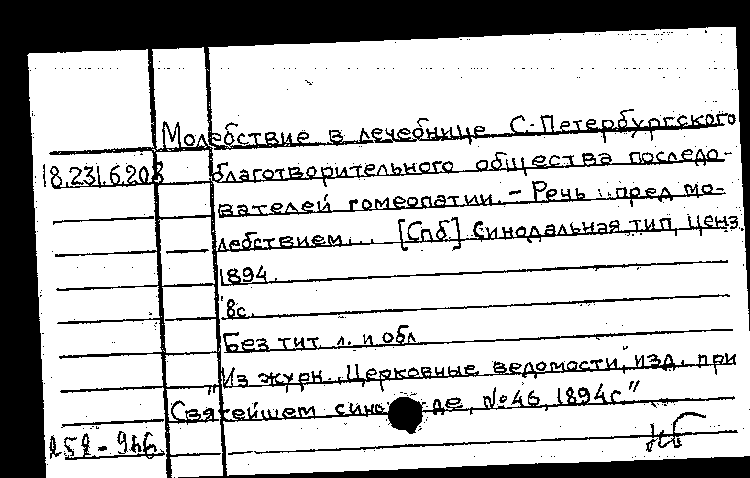 Молебствие в лечебнице С.-Петербургского
18.231.6.208 благотворительного общества последо-
вателей гомеопатии. - Речь ... пред мо-
лебствием... [Спб] Синодальная тип, ценз.
1894.
8с.
Без тит. л. и обл
"Из журн. "Церковные ведомости, изд. при
Святейшем сино де, №46, 1894г"
252-966